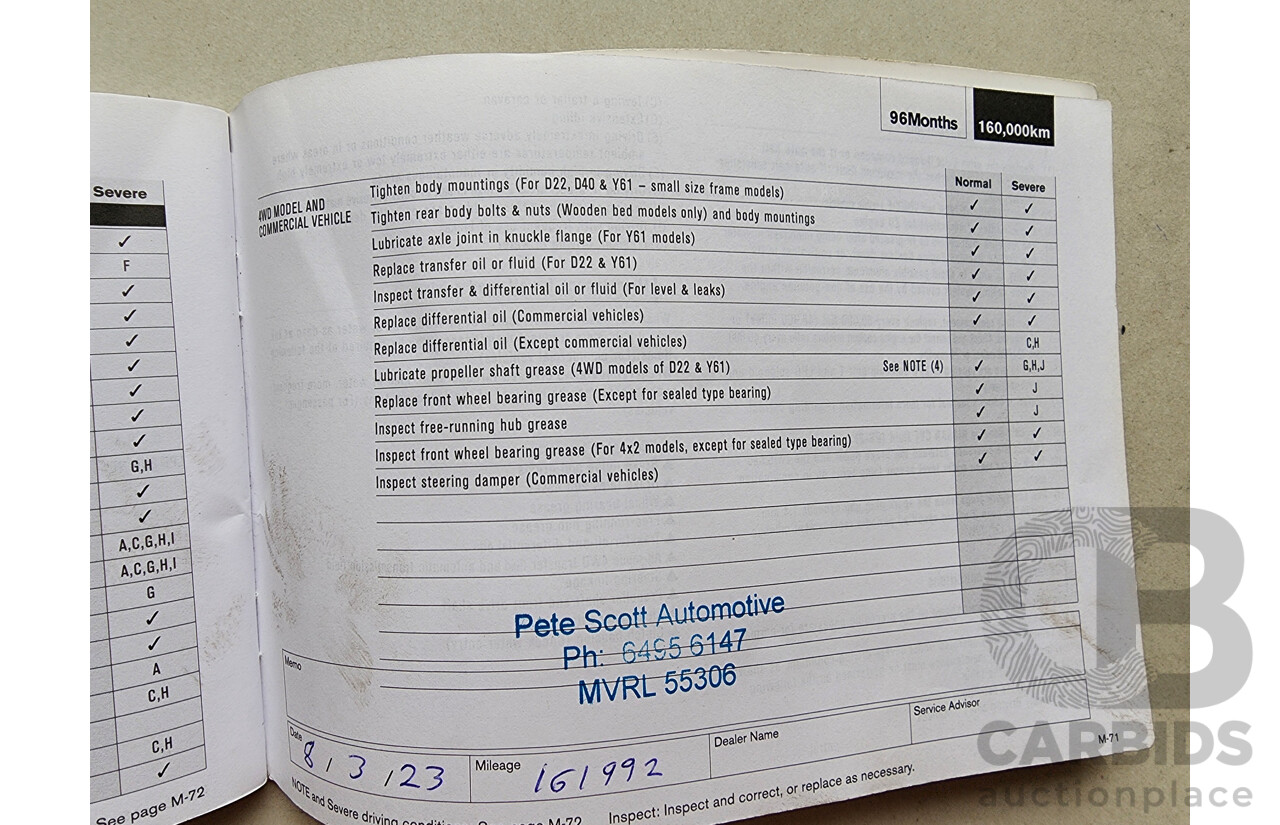 Severe
✓
F
✓
✓
✓
✓
✓
✓
✓
G,H
✓
✓
A,C,G,H,I
A,C,G,H,I
G
✓
✓
A
C,H
C,H
✓
See page M-72
96Months 160,000km
Normal Severe
4WD MODEL AND
COMMERCIAL VEHICLE
Tighten body mountings (For D22, D40 & Y61 – small size frame models) ✓ ✓
Tighten rear body bolts & nuts (Wooden bed models only) and body mountings ✓ ✓
Lubricate axle joint in knuckle flange (For Y61 models) ✓ ✓
Replace transfer oil or fluid (For D22 & Y61) ✓ ✓
Inspect transfer & differential oil or fluid (For level & leaks) ✓ ✓
Replace differential oil (Commercial vehicles) ✓ ✓
Replace differential oil (Except commercial vehicles) C,H
Lubricate propeller shaft grease (4WD models of D22 & Y61) See NOTE (4) ✓ G,H,J
Replace front wheel bearing grease (Except for sealed type bearing) ✓ J
Inspect free-running hub grease ✓ J
Inspect front wheel bearing grease (For 4x2 models, except for sealed type bearing) ✓ ✓
Inspect steering damper (Commercial vehicles) ✓ ✓
Pete Scott Automotive
Ph: 6495 6147
MVRL 55306
Memo
Date 8 / 3 / 23
Mileage 161992
Dealer Name
Service Advisor
M-71
NOTE and Severe driving M-72
Inspect: Inspect and correct, or replace as necessary.
CARBIDS
auctionplace